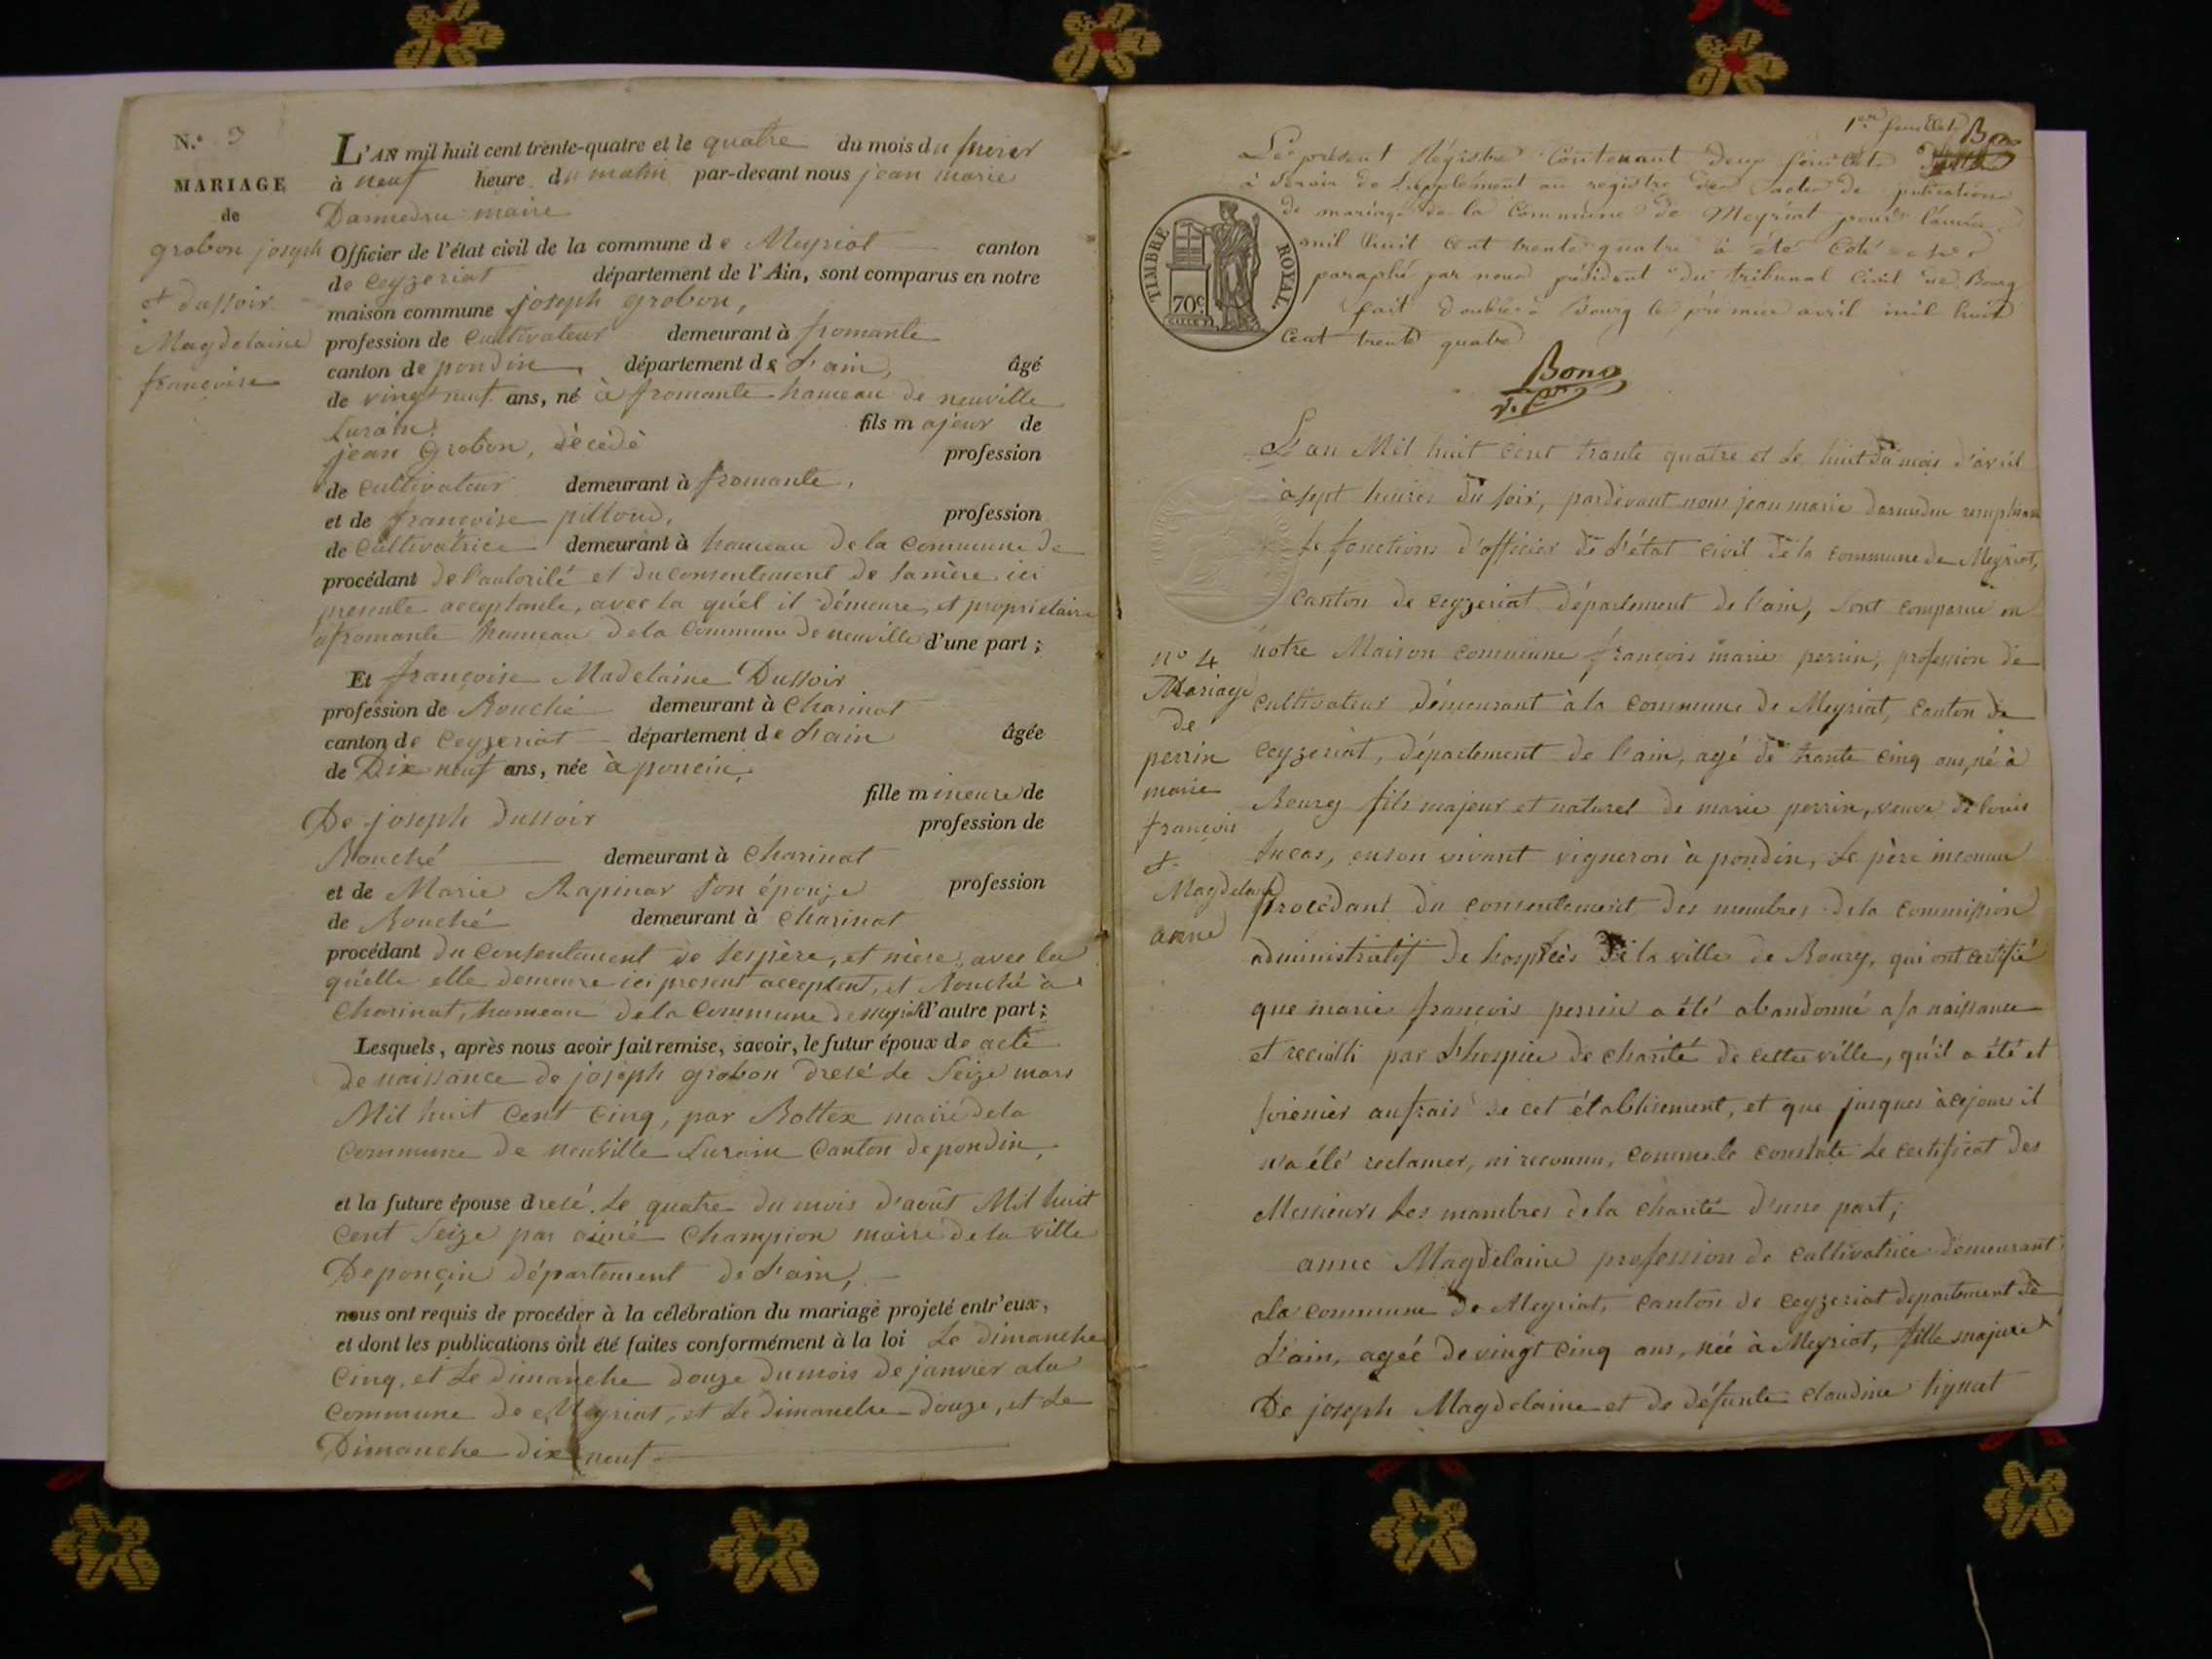 N.° 3
MARIAGE
de
grobon joseph
et dussoir
Magdelaine
françoise
L'AN mil huit cent trente-quatre et le quatre du mois du fevrier
à neuf heure du matin par-devant nous jean marie
Darmedru maire
Officier de l'état civil de la commune de Meyriat canton
de Ceyzeriat département de l'Ain, sont comparus en notre
maison commune joseph grobon,
profession de Cultivateur demeurant à fromante
canton de pondin, département de L'ain, âgé
de vingt neuf ans, né à fromante hameau de neuville
surain, fils majeur de
jean Grobon, décédé profession
de cultivateur demeurant à fromante,
et de françoise pilloud, profession
de Cultivatrice demeurant à hameau de la Commune de
procédant de l'autorité et du consentement de sa mère ici
presente acceptante, avec la quel il démeure, et propriétaire
a fromante hameau de la Commune de neuville d'une part ;
Et françoise Madelaine Dussoir
profession de Rouché demeurant à Charinat
canton de Ceyzeriat département de L'ain âgée
de Dix neuf ans, née à poncin,
fille mineure de
De joseph Dussoir profession de
Rouché demeurant à Charinat
et de Marie Rapinar son épouze profession
de Rouché demeurant à Charinat
procédant du Consentement de ses père, et mère, avec la
quelle elle demeure ici present acceptent, et Rouché à
Charinat, hameau de la Commune de d'autre part ;
Lesquels, après nous avoir fait remise, savoir, le futur époux de acte
de naissance de joseph grobon dresé Le Seize mars
Mil huit Cent Cinq, par Rottex maire de la
Commune de neuville Surain Canton de pondin,
et la future épouse dresé. Le quatre du mois d'août Mil huit
Cent Seize par aimé Champion maire de la ville
De ponçin département de L'ain,
nous ont requis de procéder à la célébration du mariage projeté entr'eux,
et dont les publications ont été faites conformément à la loi Le dimanche
Cinq, et Le dimanche douze du mois de janvier a la
Commune de Meyriat, et Le dimanche douze, et Le
Dimanche dix neuf
1er feuillet Bono
Le présent Régistre Contenant deux feuillets
à servir de Supplément au registre des actes de publications
de mariage de la Commune de Meyriat pour l'année
mil huit cent trente quatre à été Coté et
paraphé par nous président du tribunal Civil de Bourg
fait double à Bourg le premier avril mil huit
Cent trente quatre
TIMBRE ROYAL
70c
Bono
L'an Mil huit Cent trante quatre et Le huit du mois d'avril
à sept heures du soir, pardevant nous jean marie darmedru
le fonctions d'officier de L'état civil de la commune de Meyriat,
canton de ceyzeriat département de l'ain, sont comparue en
notre Maison commune françois marie perrin, profession de
cultivateur démeurant à la commune de Meyriat, canton de
Ceyzeriat, département de l'ain, agé de trante cinq ans, né à
Bourg fils majeur et naturel de marie perrin, veuve de louis
Lucas, enson vivant vigneron à pondin, Le père inconnu
procédant du consentement des membres de la commission
administratif de hospices de la ville de Bourg, qui ont certifié
que marie françois perrin a été abandonné a sa naissance
et recuilli par L'hospice de charité de cette ville, qu'il a été et
aufrais de cet établisement, et que jusques à ce jour il
n'a été reclamer, ni reconnu, comme le constate Le certificat des
Messieurs Les mambres de la charité d'une part ;
n° 4
Mariage
de
perrin
marie
françois
et
Magdelaine
anne
anne Magdelaine profession de cultivatrice demeurant
a la commune de Meyriat, canton de ceyzeriat departement de
L'ain, ageé de vingt cinq ans, née à Meyriat, fille majure
De joseph Magdelaine et de défunte claudine tignat